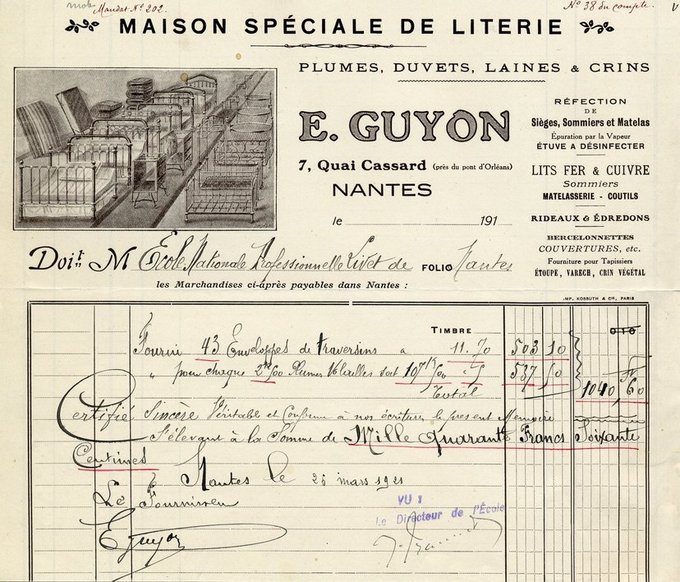 Mandat Nº 202.
Nº 38 du compte.
V
MAISON SPÉCIALE DE LITERIE
PLUMES, DUVETS, LAINES & CRINS
E. GUYON
7, Quai Cassard (près du pont d'Orléans)
NANTES
le 191
RÉFECTION
DE
Sièges, Sommiers et Matelas
Épuration par la Vapeur
ÉTUVE A DÉSINFECTER
LITS FER & CUIVRE
Sommiers
MATELASSERIE - COUTILS
RIDEAUX & ÉDREDONS
BERCELONNETTES
COUVERTURES, etc.
Fourniture pour Tapissiers
ÉTOUPE, VARECH, CRIN VÉGÉTAL
Doit M École Nationale Professionnelle Livet de FOLIO Nantes
les Marchandises ci-après payables dans Nantes :
IMP. KOSSUTH & Cie, PARIS
TIMBRE 010
Fourni 43 Enveloppes de traversins a 11.70 503 10
" pour chaque 2k500 Plumes Volailles soit 107 k500 5 537 50
Total 1040 60
Certifié Sincère Véritable et Conforme à nos écritures le présent Mémoire
S'élevant à la Somme de Mille Quarante Francs Soixante
Centimes
à Nantes le 26 mars 1921
Le Fournisseur
E Guyon
VU :
Le Directeur de l'École